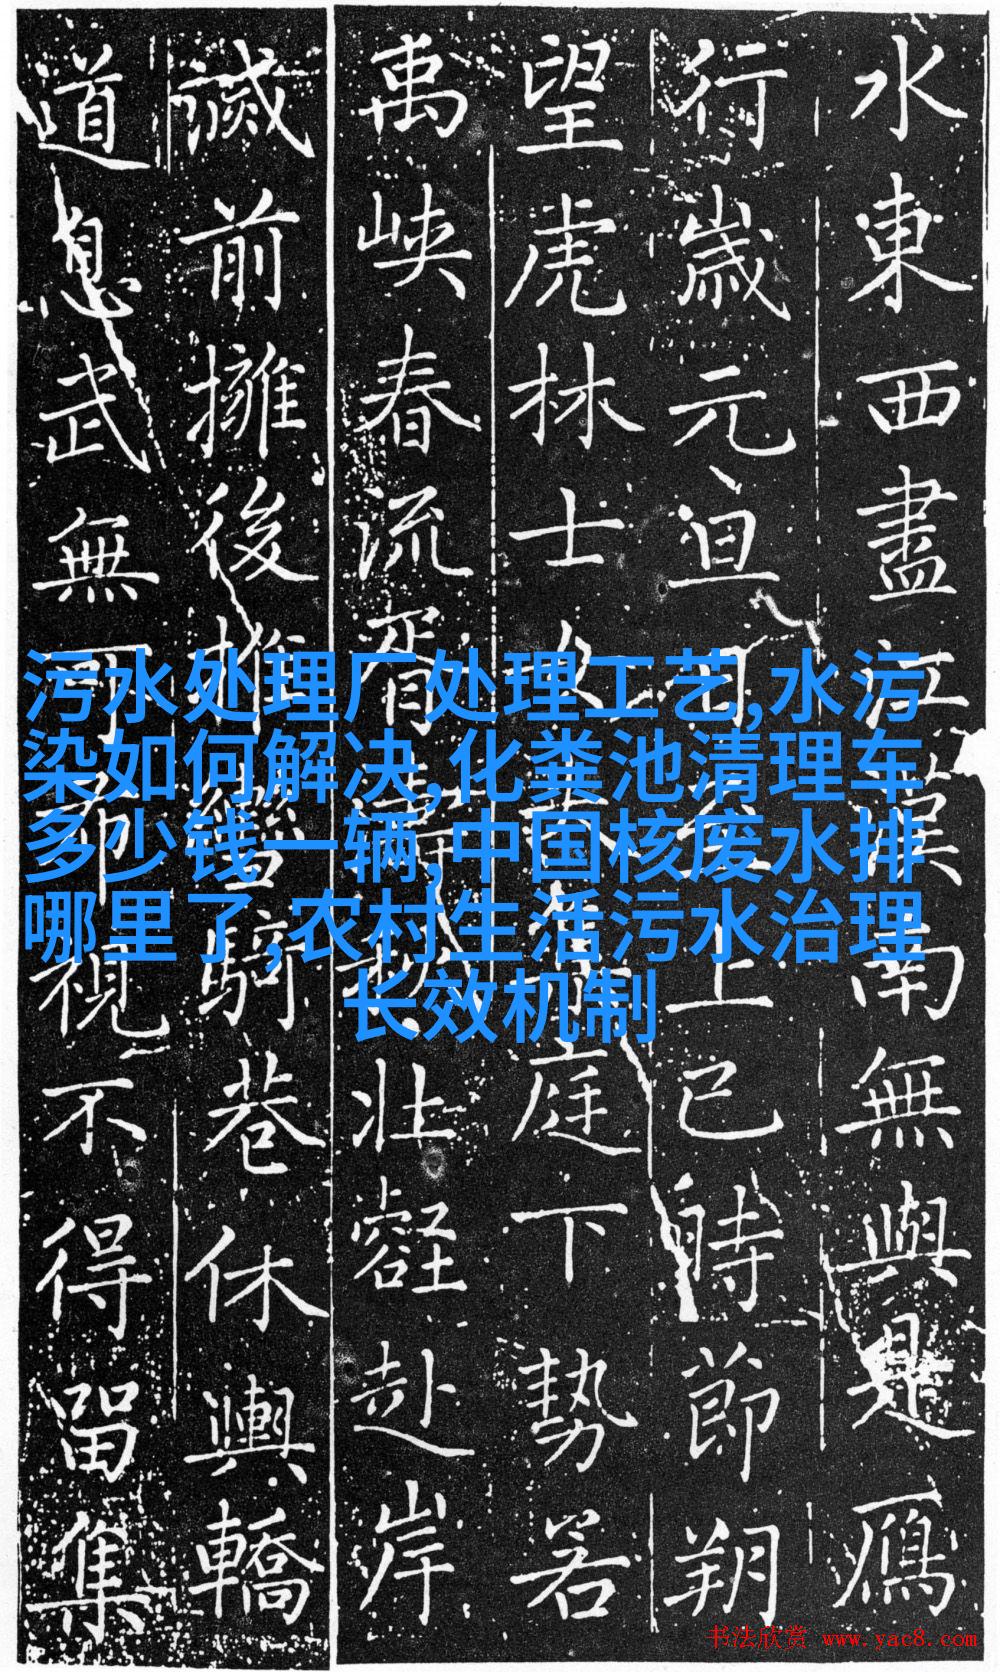 污水处理厂处理工艺,水污
染如何解决,化粪池清理车
多少钱一辆,中国核废水排
哪里了,农村生活污水治理
长效机制
水東西盡江漢南無與是鴈
行歲元旦日至上巳時節朔
望虎林士女庭下勢若
禹峽春流胥濤秋壯壑赴岸
前擁後推騎巷休輿轎
道息武無可視不得留集
书法欣赏 www.yac8.com